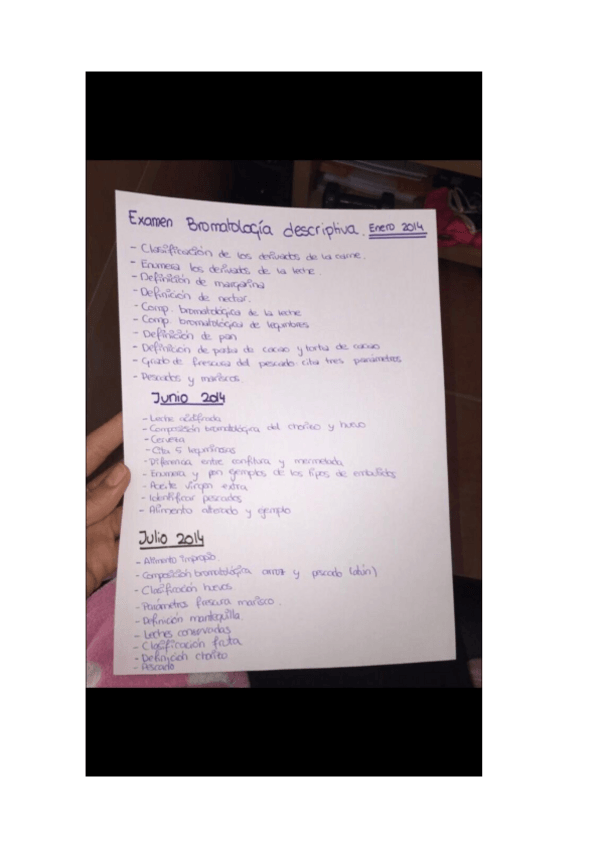 Examen Bromatología descriptiva. Enero 2014
- Clasificación de los derivados de la carne.
- Enumera los derivados de la leche.
- Definición de margarina
- Definición de nectar.
- Comp. bromatológica de la leche
- Comp. bromatológica de legumbres
- Definición de pan
- Definición de pasta de cacao y torta de cacao
- Grado de frescura del pescado. cita tres parámetros
- Pescados y mariscos.
Junio 2014
- Leche acidificada
- Composición bromatológica del chorizo y huevo
- Cerveza
- Cita 5 leguminosas
- Diferencia entre confitura y mermelada
- Enumera y pon ejemplos de los tipos de embutidos
- Aceite virgen extra
- Identificar pescados
- Alimento alterado y ejemplo
Julio 2014
- Alimento impropio.
- Composición bromatológica arroz y pescado (atún)
- Clasificación huevos
- Parámetros frescura marisco.
- Definición mantequilla
- Leches conservadas
- Clasificación fruta
- Definición chorizo
- Pescado